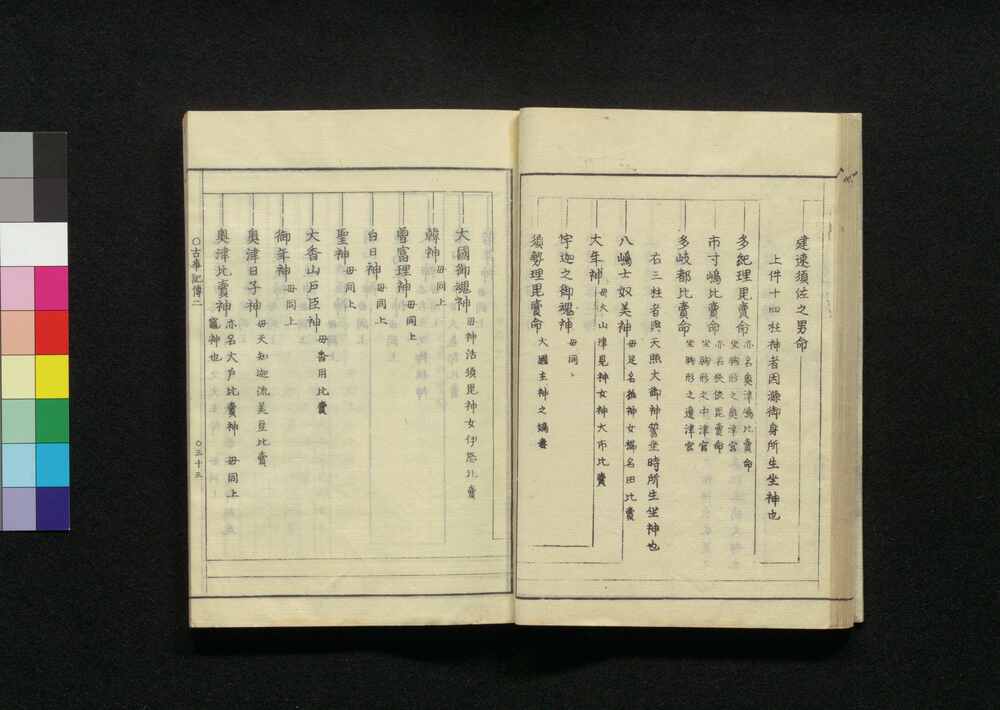 建速須佐之男命
上件十四柱神者因滌御身所生坐神也
多紀理毘賣命 亦名奥津嶋比賣命
坐胸形之奥津宮
市寸嶋比賣命 亦名狹依毘賣命
坐胸形之中津宮
多岐都比賣命 坐胸形之邊津宮
右三柱者與天照大御神誓坐時所生坐神也
八嶋士奴美神 毋足名椎神女櫛名田比賣
大年神 毋大山津見神女神大市比賣
宇迦之御魂神 毋同上
須勢理毘賣命 大國主神之嫡妻
大國御魂神 毋神活須毘神女伊怒比賣
韓神 毋同上
曾富理神 毋同上
白日神 毋同上
聖神 毋同上
大香山戸臣神 毋香用比賣
御年神 毋同上
奥津日子神 毋天知迦流美豆比賣
奥津比賣神 亦名大戸比賣神 毋同上
竈神也
○古事記傳二
○三十三